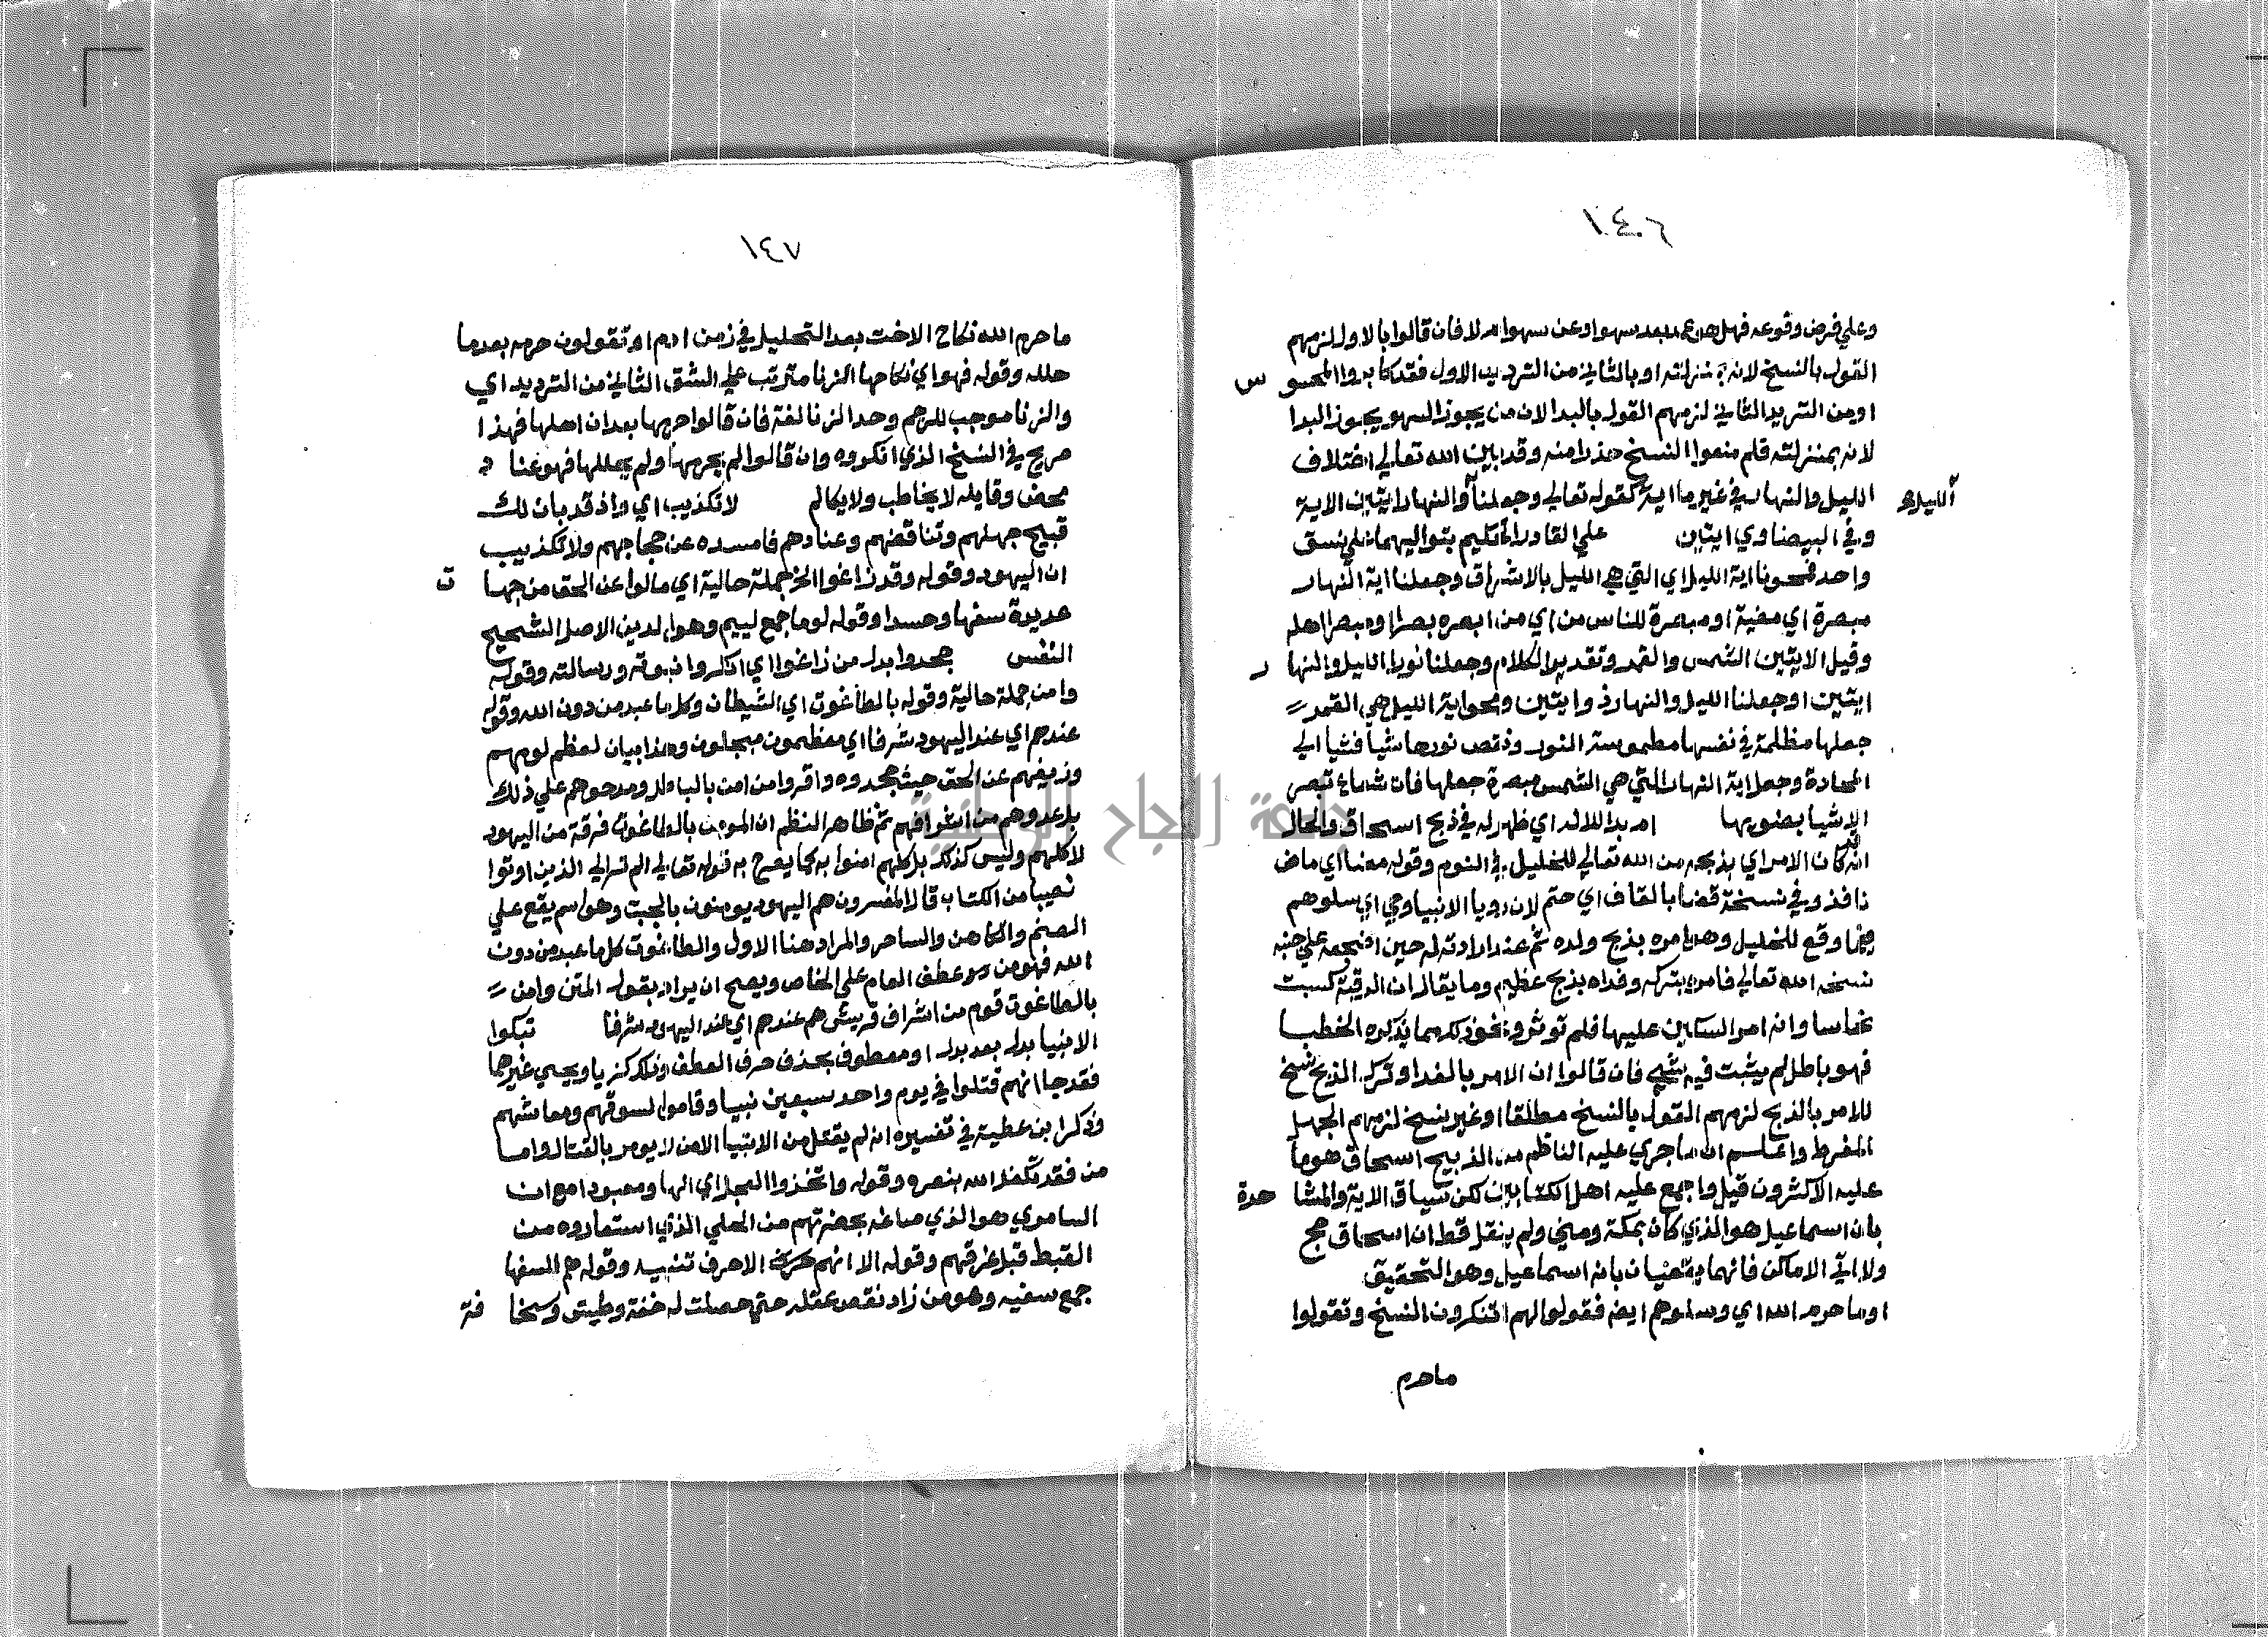 ١٤٠٦
وعلي فرض وقوعه فهل هو عمدا بعد سهوا وعن سهوا م لا فان قالوا بالاول لزمهم
القول بالنسخ لانه بمنزلته او بالثاني من الترديد الاول فقد كابروا المحسو س
او من الترديد الثاني لزمهم القول بالبدا لان من يجوز السهو يجوز البدا
لانه بمنزلته فلم منعوا النسخ حذرا منه وقد بين الله تعالي اختلاف
الليل والنهار في غير ما اية كقوله تعالي وجعلنا والنهار ايتين الاية
الليل
وفي البيضاوي ايتين علي القادر الحكيم بتواليهما علي نسق
واحد فمحونا اية الليل اي التي هي الليل بالاشراق وجعلنا اية النهار
مبصرة اي مضية او مبصرة للناس من اي من ابصره بصرا ومبصرا اهله
وقيل الايتين الشمس والقمر وتقدير الكلام وجعلنا نورا الليل والنها ر
ايتين او جعلنا الليل والنهار ذوا يتين ومحواية الليل هي القمر
جعلها مظلمة في نفسها مطموسة النور ونقص نورها شيا فشيا الي
المحادة وجعل اية النهار التي هي الشمس مبصرة جعلها ذات شعاع تبصر
الاشيا بضويها ام بدا للاله اي ظهر له في ذبح اسحاق والحال
انه كان الامر اي بذبحه من الله تعالي للخليل في النوم وقوله مضا اي ماض
نافذ وفي نسخة قضا بالقاف اي حتم لان رويا الانبيا وحي اي سلوهم
ايضا وقع للخليل وهو امره بذبح ولده ثم عند ارادته له حين اضجعه علي جنبه
نسخه الله تعالي فامره بتركه وفداه بذبح عظيم وما يقال ان الرقبة كسبت
نحاسا وانه امر السكين عليها فلم توثر ونحو ذلك مما يذكره الخطبا
فهو باطل لم يثبت فيه شي فان قالوا ان الامر بالفدا وترك الذبح نسخ
للامر بالذبح لزمهم القول بالنسخ مطلقا او غير نسخ لزمهم الجهل
المفرط واعلم ان ما جري عليه الناظم من الذبيح اسحاق هو ما
عليه الاكثرون قيل واجمع عليه اهل الكتابين لكن سياق الاية والمشا هدة
بان اسماعيل هو الذي كان بمكة ومني ولم ينقل قط ان اسحاق حج
ولا اتي الاماكن فانهما يقضيان بانه اسماعيل وهو التحقيق
او ما حرم الله اي وسلوهم ايض فقولوا لهم اتنكرون النسخ وتقولوا
ما حرم
١٤٧
ما حرم الله نكاح الاخت بعد التحليل في زمن ادم او تقولون حرمه بعد ما
حلله وقوله فهو اي نكاحها الزنا مترتب علي الشق الثاني من الترديد اي
والزنا موجب للرجم وحد الزنا لغة فان قالوا حرمها بعد ان احلها فهذا
صريح في النسخ الذي انكروه وان قالوا لم يحرمها ولم يحللها فهو عنا د
محض وقايله لا يخاطب ولا يكالم لا تكذيب اي واذ قد بان لك
قبيح جهلهم وتناقضهم وعنادهم فامسده عن حجاجهم ولا تكذيب
ان اليهود وقوله وقد زاغوا الخ جملة حالية اي مالوا عن الحق من جها ت
عديدة سفها وحسدا وقوله لوما جمع لييم وهو الدين الاصل الشحيح
النفس جحدوا بدل من زاغوا اي انكروا نبوته ورسالته وقوله
وامن جملة حالية وقوله بالطاغوت اي الشيطان وكل ما عبد من دون الله وقوله
عندهم اي عند اليهود شرفا اي معظمون مبجلون وهذا بيان لعظم لومهم
وزيغهم عن الحق حيث جحدوه واقروا من امن بالباطل ومدحوهم علي ذلك
بل عدوهم من اشرافهم ثم ظاهر النظم ان المومن بالطاغوت فرقة من اليهود
لا كلهم وليس كذلك بل كلهم امنوا به كما يصرح به قوله تعالي الم تر الي الذين اوتوا
نصيبا من الكتاب قال المفسرون هم اليهود يومنون بالجبت وهو اسم يقع علي
الصنم والكاهن والساحر والمراد هنا الاول والطاغوت كل ما عبد من دون
الله فهو من عطف العام علي الخاص ويصح ان يراد بقول المتن وامن
بالطاغوت قوم من اشراف قريش هم عندهم اي عند اليهود شرفا تبكوا
الانبيا بدل بعد بدل او معطوف بحذف حرف العطف وذلك كزكريا ويحيي غيرهما
فقد جا انهم قتلوا في يوم واحد سبعين نبيا وقاموا لسوقهم ومعاشهم
وذكر ابن عطية في تفسيره انه لم يقتل من الانبيا الا من لا يومر بالقتال واما
من فقد تكفل الله بنصره وقوله واتخذوا العجل اي الها ومعبودا مع ان
السامري هو الذي صاغه بحضرتهم من الحلي الذي استعاروه من
القبط قبل غرقهم وقوله الا انهم الاحرف تنبيه وقوله هم السفها
جمع سفيه وهو من زاد نقص عقله حتي حصلت له خفة وطيش وسخا فة
جامعة النجاح الوطنية